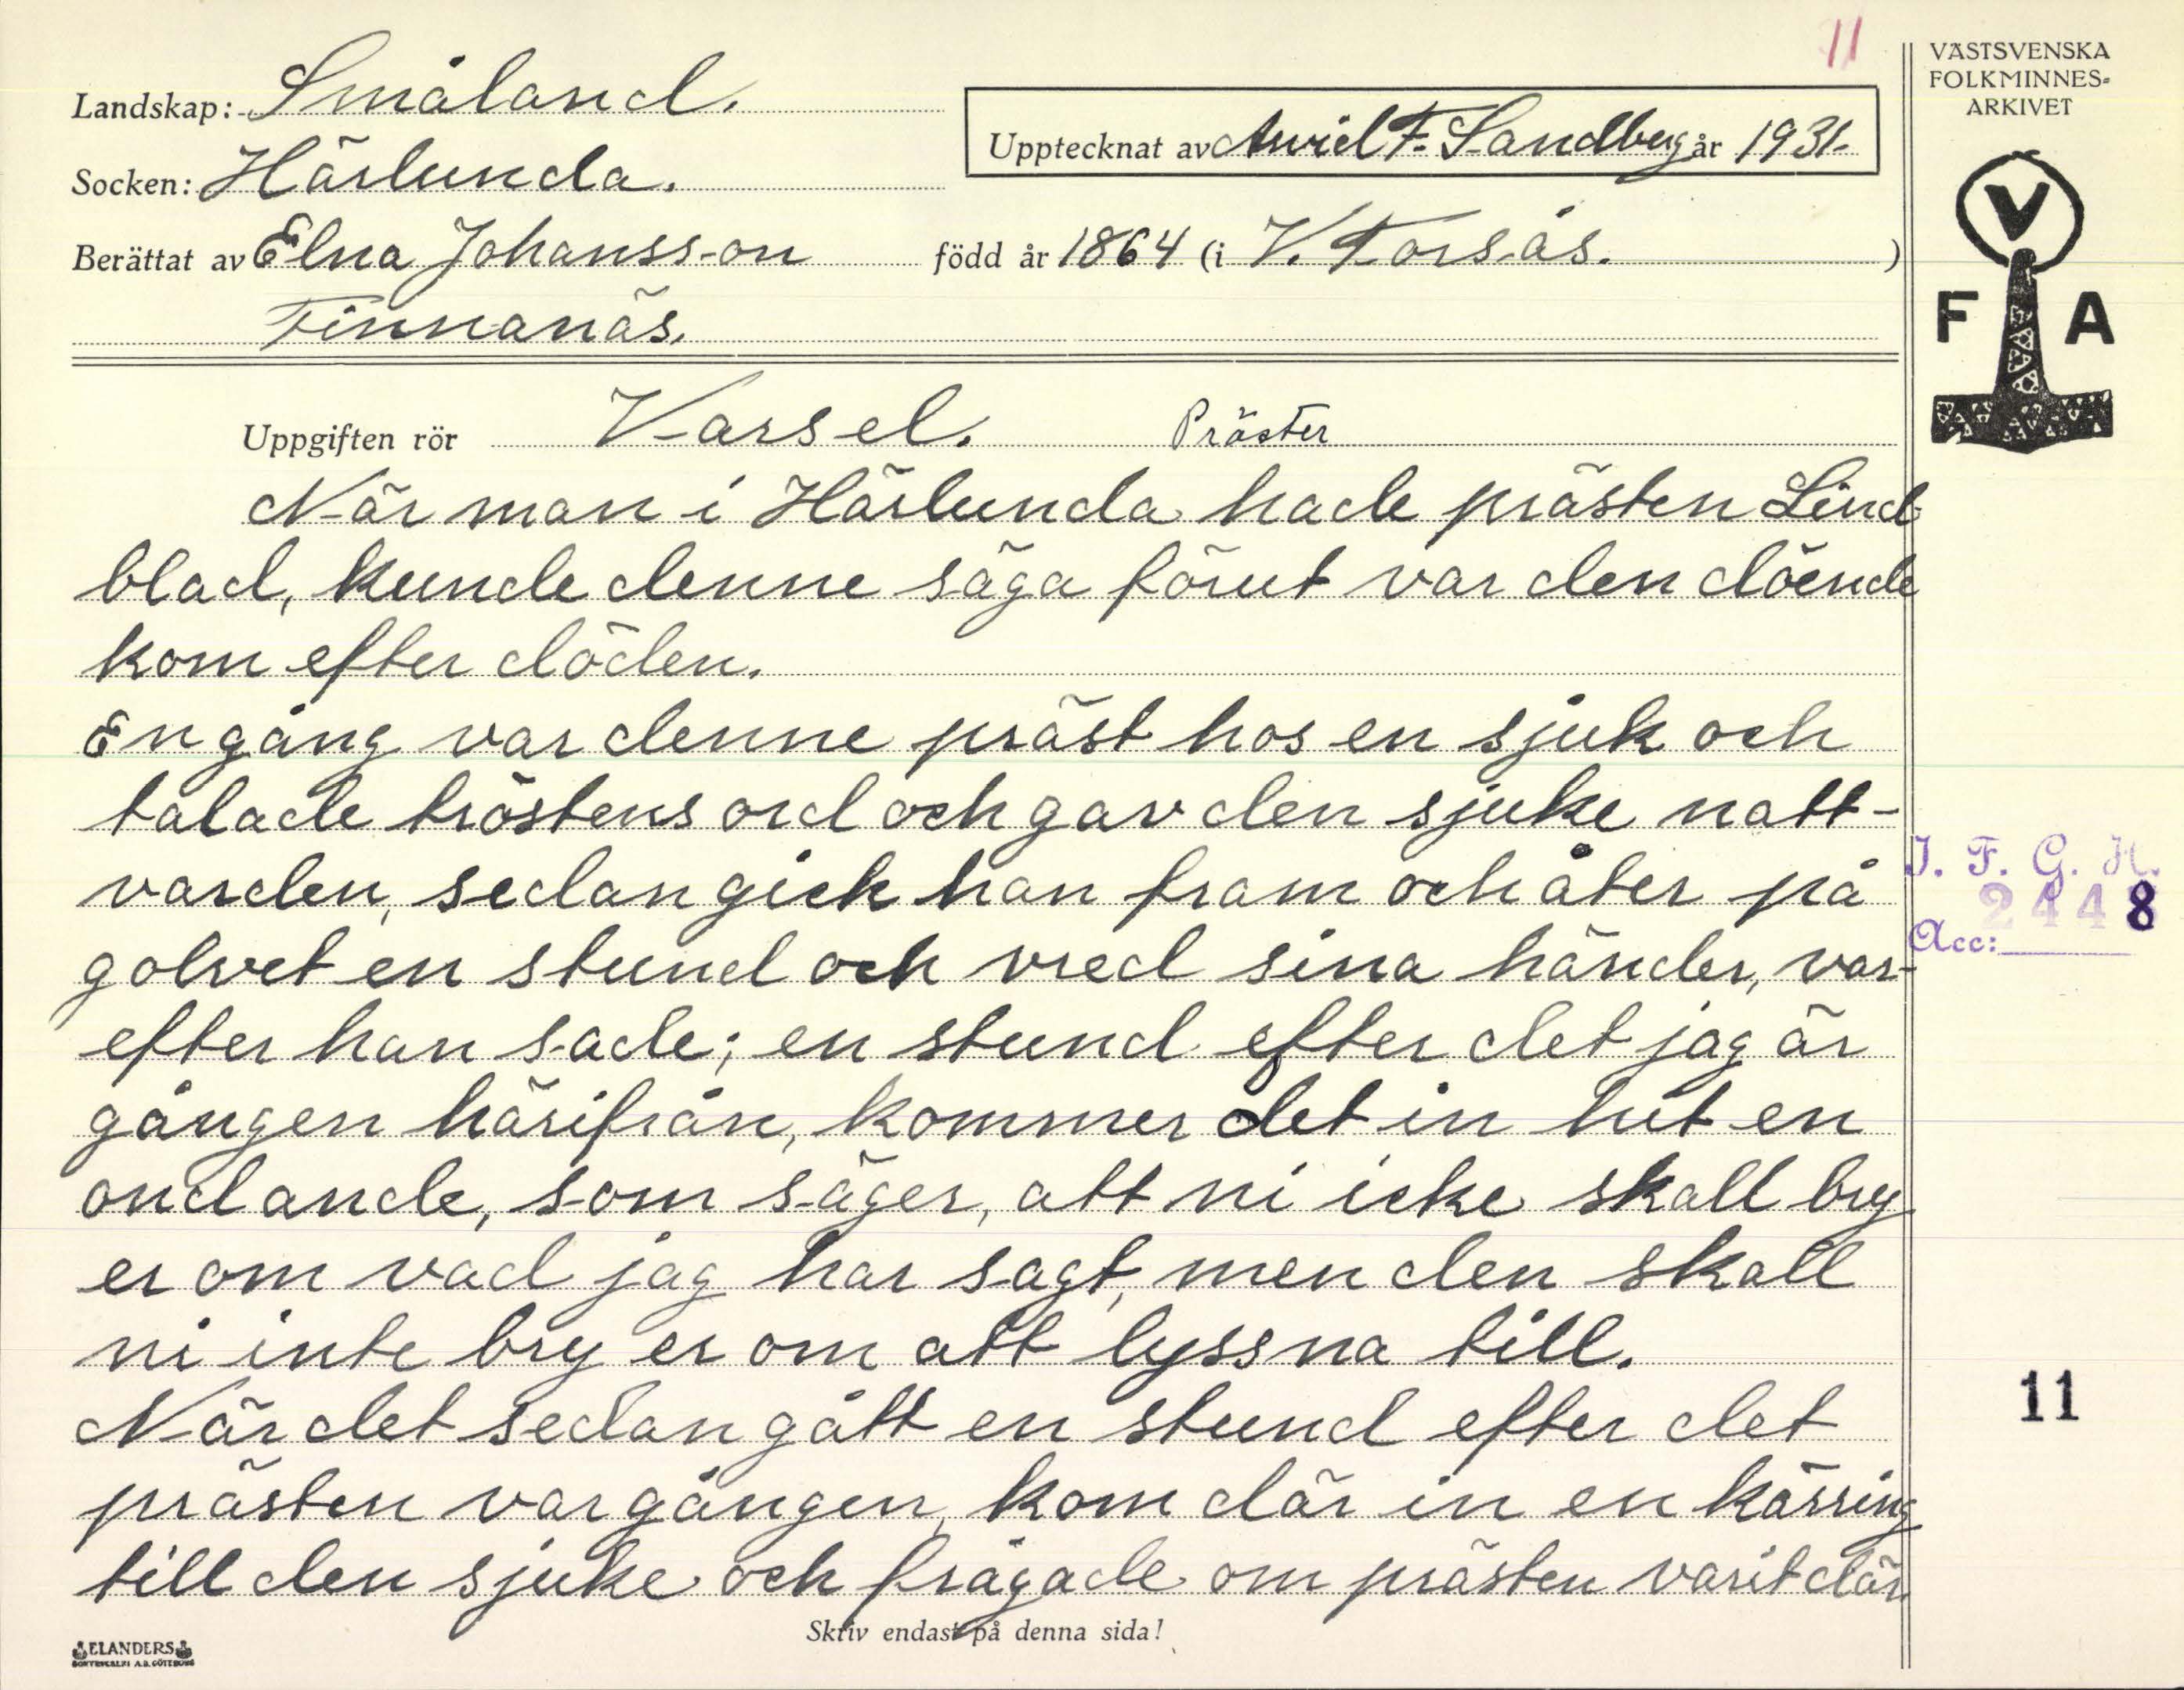 11
VÄSTSVENSKA
FOLKMINNES-
ARKIVET
Landskap: Småland.
Upptecknat av Arvid F. Sandberg år 1931.
Socken: Härlunda.
Berättat av Elna Johansson född år 1864 (i V. Torsås.)
Finnanäs.
V
F A
Uppgiften rör Varsel. Präster
När man i Härlunda hade prästen Lind-
blad, kunde denne säga förut var den döende
kom efter döden.
En gång var denne präst hos en sjuk och
talade tröstens ord och gav den sjuke natt-
varden, sedan gick han fram och åter på
golvet en stund och vred sina händer, var-
efter han sade; en stund efter det jag är
gången härifrån, kommer det in hit en
ond ande, som säger, att ni icke skall bry
er om vad jag har sagt, men den skall
ni inte bry er om att lyssna till.
När det sedan gått en stund efter det
prästen var gången, kom där in en kärring
till den sjuke och frågade om prästen varit där.
I. F. G. H.
2448
Acc:
11
Skriv endast på denna sida!
ELANDERS